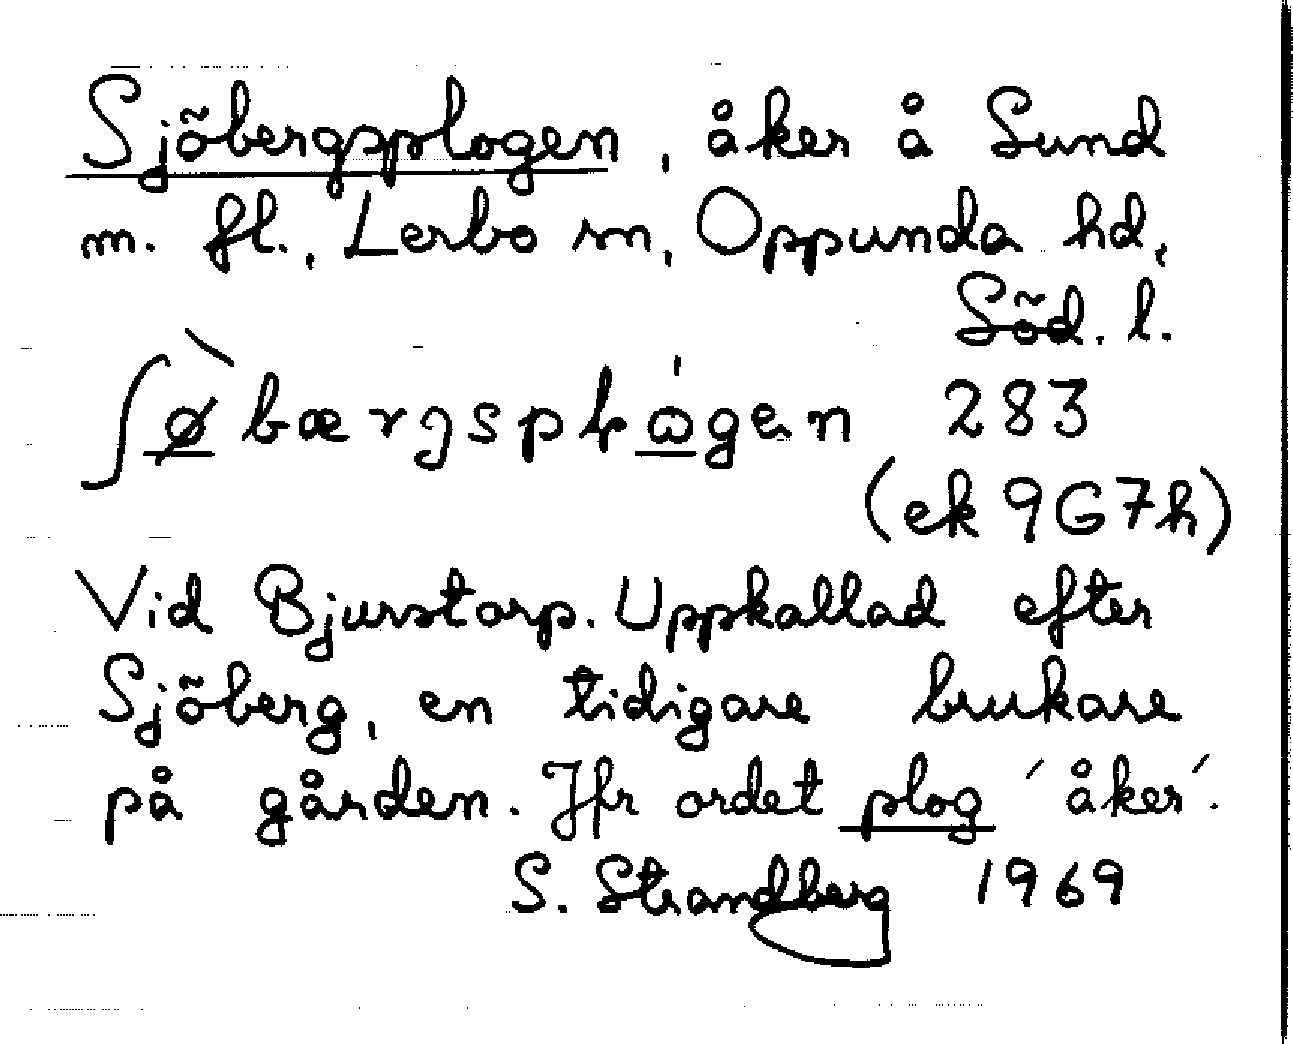 Sjöbergsplogen, åker å Sund
m. fl., Lerbo sn, Oppunda hd,
Söd. l.
283
(ek 9G7h)
Vid Bjurstorp. Uppkallad efter
Sjöberg, en tidigare brukare
på gården. Jfr ordet plog ´åker´.
S. Strandberg 1969